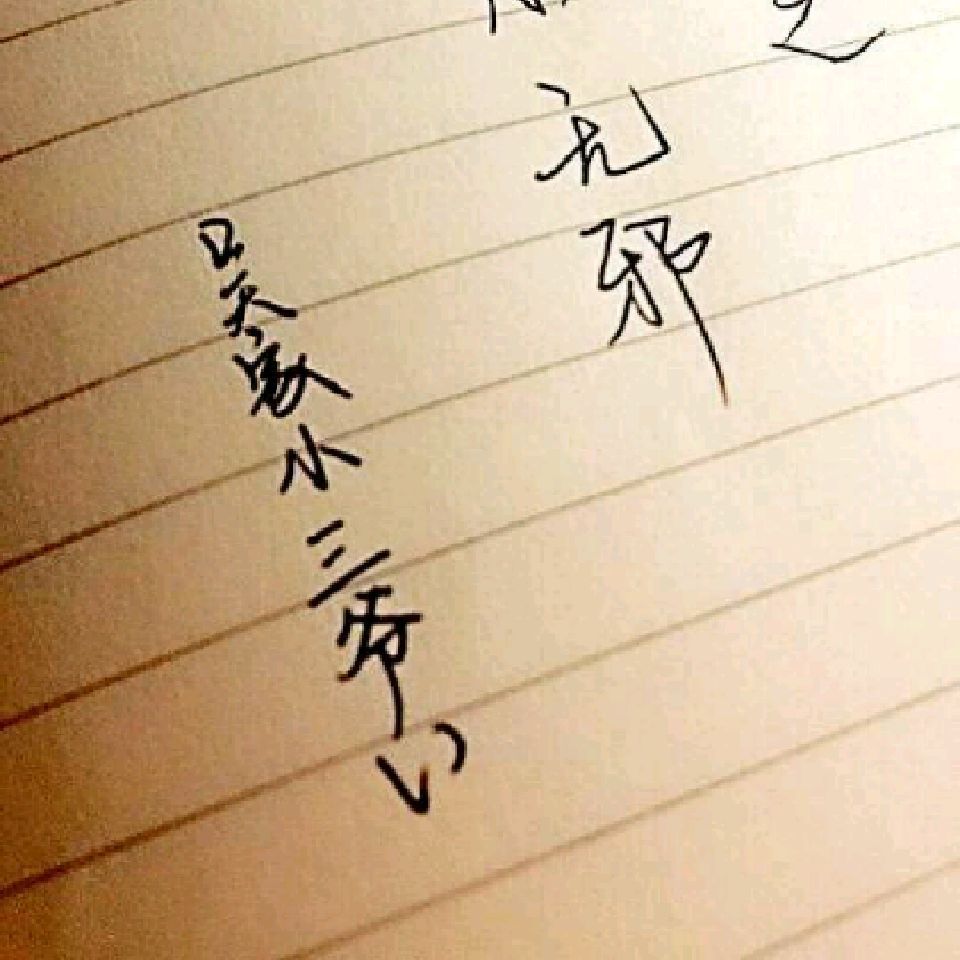 无邪
吴家小三爷